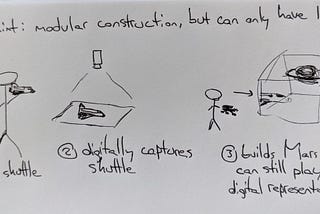 int: modular construction, but can only have 1
shuttle
② digitally captures
shuttle
③ builds Mars
can still play
digital represent